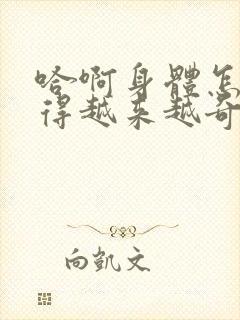 哈啊身體怎
得越来越奇
向凱文